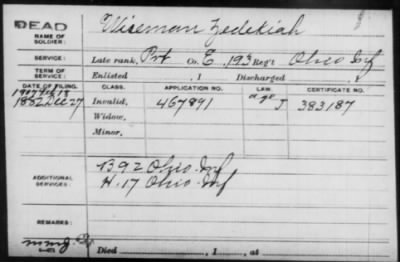 DEAD
NAME OF SOLDIER: Wiseman Zedekiah
SERVICE: Late rank, Pvt Co. E, 193 Reg't Ohio Inf
TERM OF SERVICE: Enlisted , 1 Discharged , 1
DATE OF FILING. CLASS. APPLICATION NO. LAW. CERTIFICATE NO.
1907 Feb 13
1882 Dec 27 Invalid, 467891 age J 383187
Widow,
Minor,
ADDITIONAL SERVICES: 
Ohio Inf
H. 17 Ohio Inf
REMARKS:
Died , 1 , at